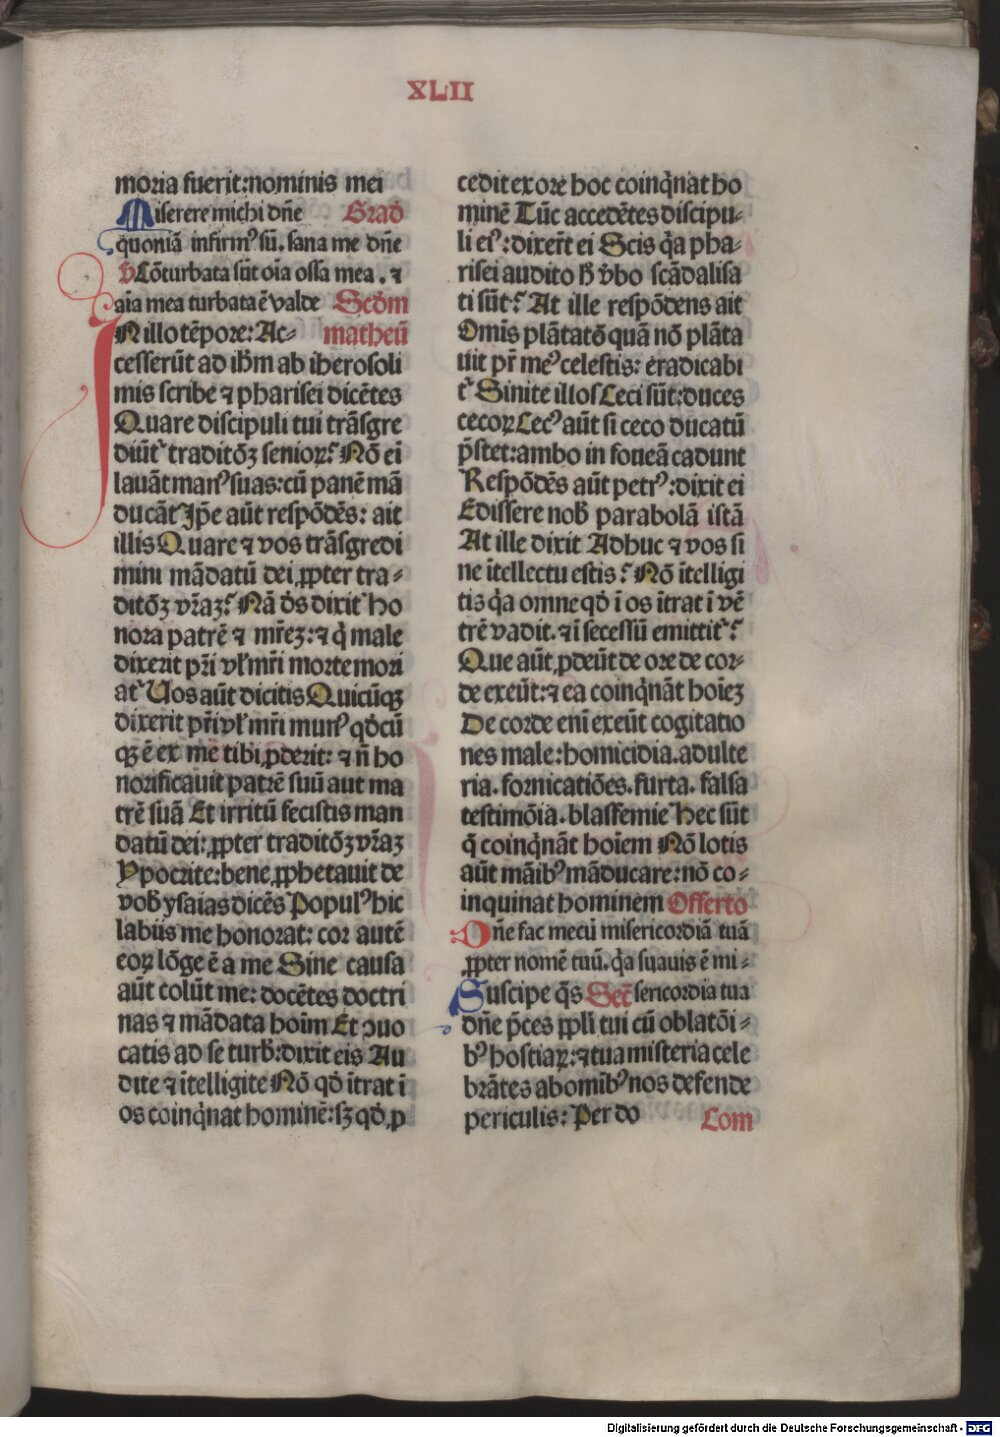 XLII
moria fuerit: nominis mei
Miserere michi dñe Grad̄
quoniā infirmꝰ sū. sana me dñe
℣ Cōturbata sūt oīa ossa mea. ⁊
aīa mea turbata ē valde Scd̄m
IN illo tēpore: Ac⸗ matheū
cesserūt ad ih̄m ab iherosoli
mis scribe ⁊ pharisei dicētes
Quare discipuli tui trāsgre
diūt᷑ traditōꝫ senioꝝ? Nō ei̅
lauāt manꝰ suas: cū panē mā
ducāt Ip̄e aūt respōdēs: ait
illis Quare ⁊ vos trāsgredi
mini mādatū dei ꝓpter tra⸗
ditōꝫ vr̄aꝫ? Nā d̄s dixit ho
nora patrē ⁊ mr̄eꝫ: ⁊ q̇ male
dixerit pr̄i vl̕ mr̄i morte mori
at᷑ Uos aūt dicitis Quicūqꝫ
dixerit pr̄i vl̕ mr̄i munꝰ qd̄cū
qꝫ ē ex me tibi ꝓderit: ⁊ n̄ ho
norificauit patrē suū aut ma
trē suā Et irritū fecistis man
datū dei: ꝓpter traditōꝫ vr̄aꝫ
Ypocrite: bene ꝓphetauit de
vob̄ ysaias dicēs Populꝰ hic
labiis me honorat: cor autē
eoꝝ lōge ē a me Sine causa
aūt colūt me: docētes doctri
nas ⁊ mādata hoīm Et ↄuo
catis ad se turb̄: dixit eis Au
dite ⁊ ītelligite Nō qd̄ ītrat ī
os coinq̇nat hominē: sꝫ qd̄ ꝓ
cedit ex ore hoc coinq̇nat ho
minē Tūc accedētes discipu⸗
li eiꝰ: dixer̄t ei Scis q̇a pha⸗
risei audito h̄ v̄bo scādalisa
ti sūt? At ille respōdens ait
Omīs plātatō quā nō plāta
uit pr̄ meꝰ celestis: eradicabi
t᷑ Sinite illos Ceci sūt: duces
cecoꝝ Cecꝰ aūt si ceco ducatū
p̄stet: ambo in foueā cadunt
Respōdēs aūt petrꝰ: dixit ei
Edissere nob̄ parabolā istā
At ille dixit Adhuc ⁊ vos si
ne ītellectu estis? Nō ītelligi
tis q̇a omne qd̄ ī os ītrat ī vē
trē vadit. ⁊ ī secessū emittit᷑?
Que aūt ꝓdeūt de ore de cor⸗
de exeūt: ⁊ ea coinq̇nāt hoīeꝫ
De corde enī exeūt cogitatio
nes male: homicidia. adulte
ria. fornicatiōes. furta. falsa
testimōia. blasfemie Hec sūt
q̄ coinq̇nāt hoīem Nō lotis
aūt māibꝰ māducare: nō co⸗
inquinat hominem Offerto
Dñe fac mecū misericordiā tuā
ꝓpter nomē tuū. q̇a suauis ē mi⸗
Suscipe q̄s Sec̄ sericordia tua
dñe p̄ces ppl̄i tui cū oblatōi⸗
bꝰ hostiaꝝ: ⁊ tua misteria cele
brātes ab omībꝰ nos defende
periculis: Per do Com
Digitalisierung gefördert durch die Deutsche Forschungsgemeinschaft - DFG